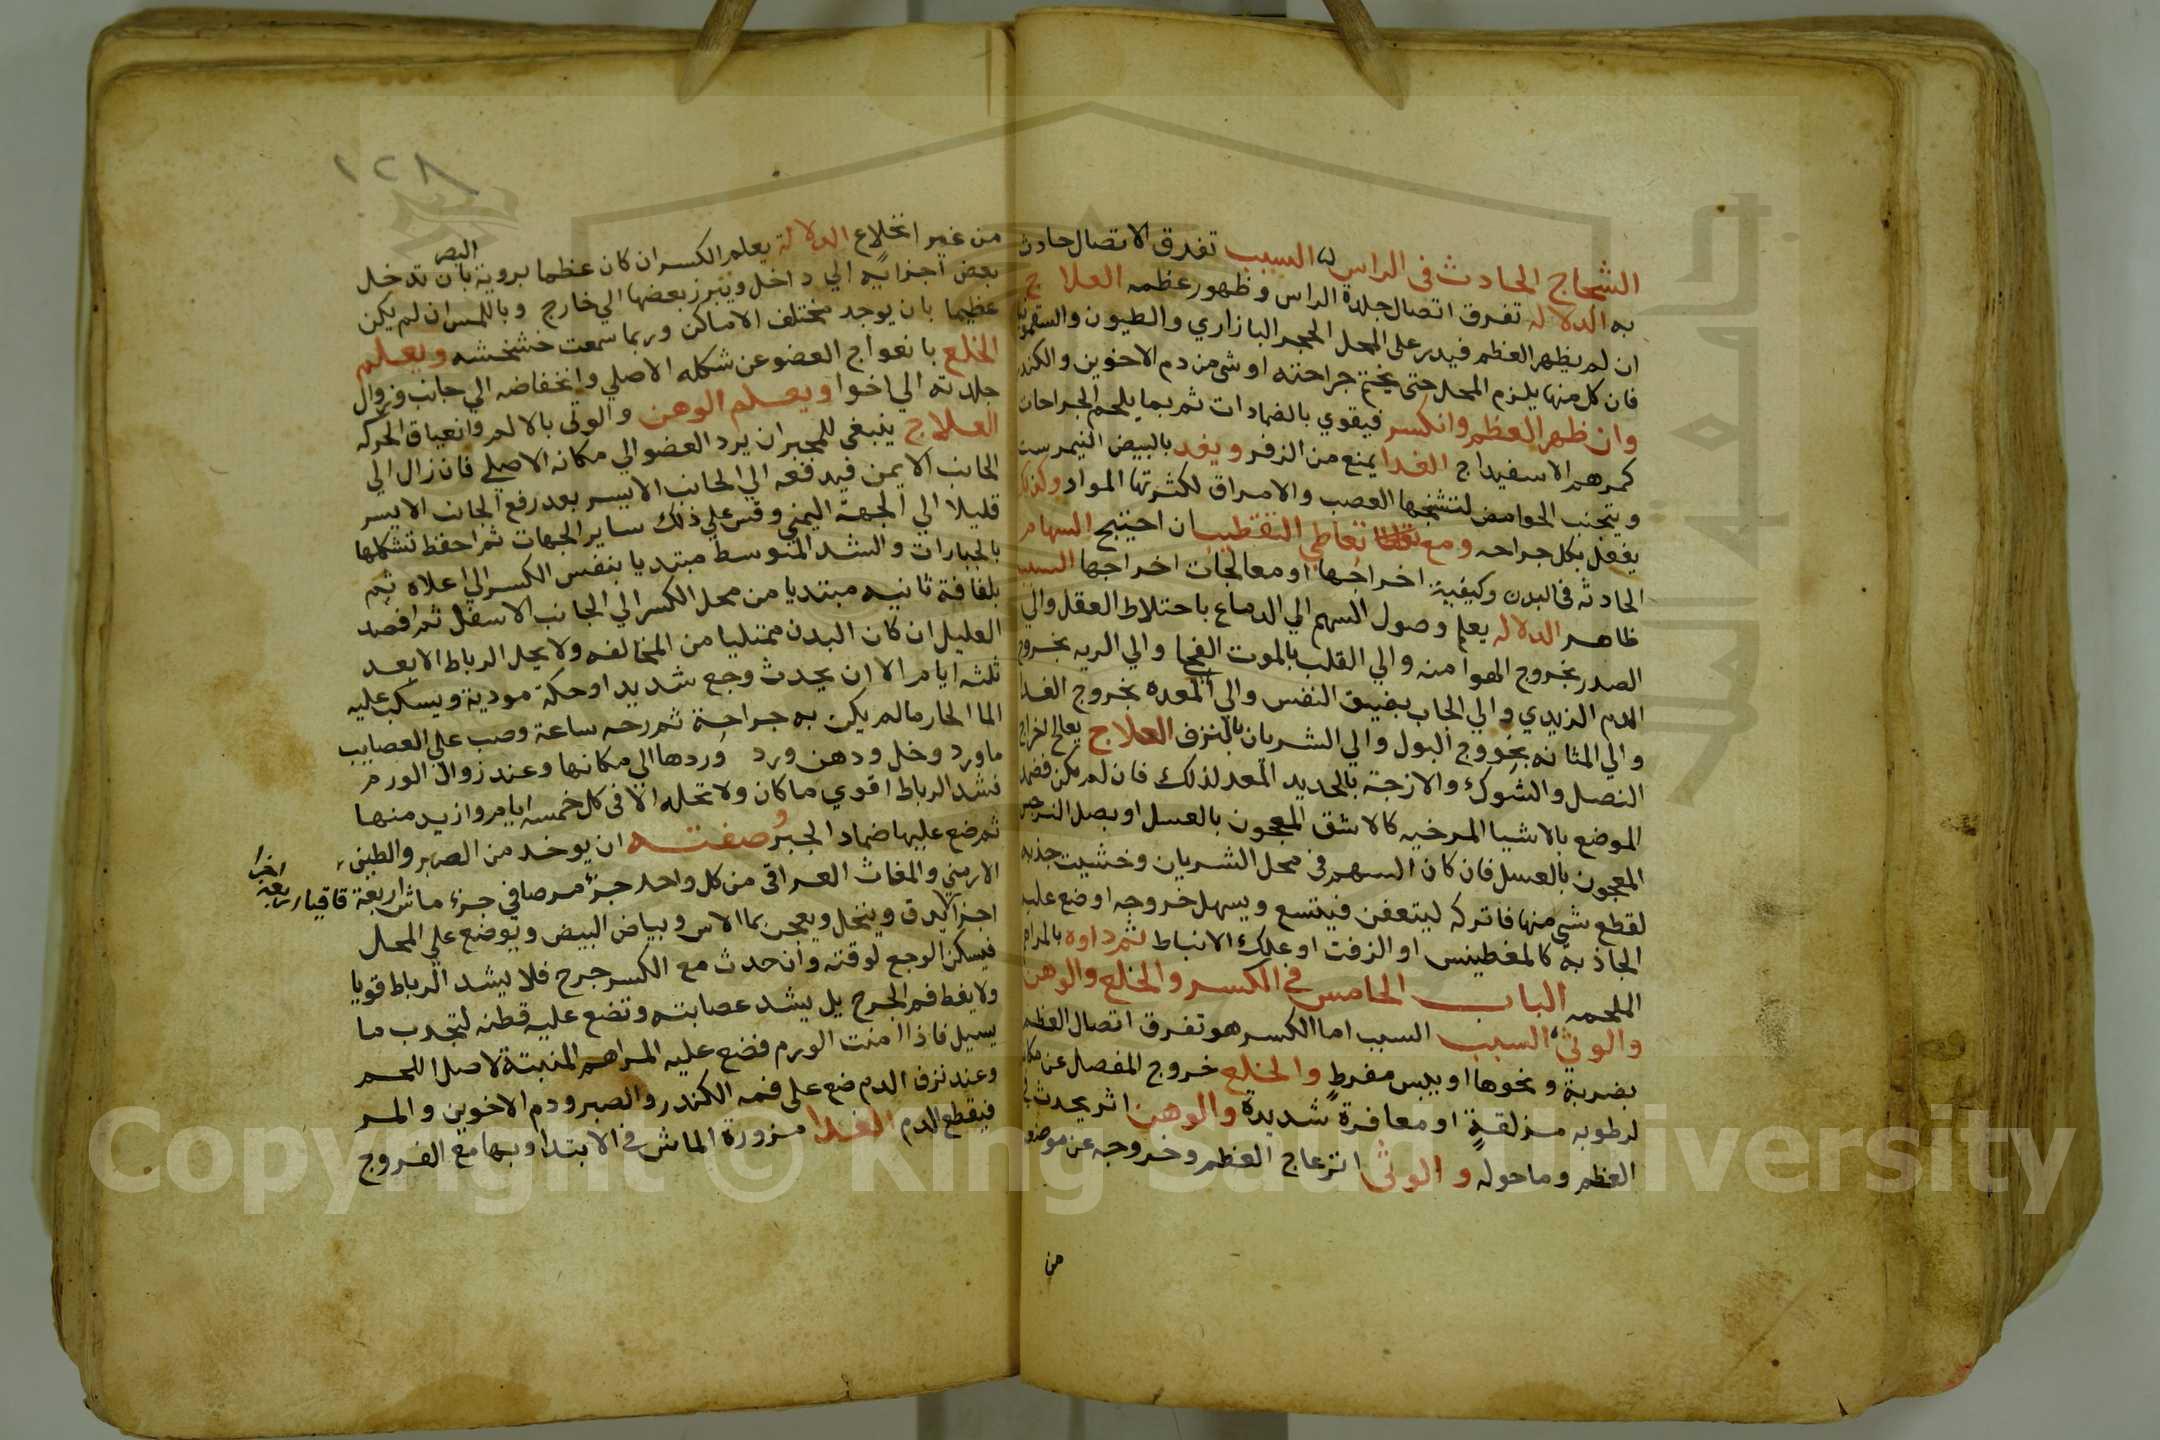 الشجاج الحادث في الراس السبب تفرق الاتصال حادث
به الدلاله تفرق اتصال جلدة الراس وظهور عظمه العلاج
ان لم يظهر العظم فيدر على المحل الحجر البازاري والطيون والسقمونيا
فان كل منها يلزم المحل حتى يختم جراحته او شي من دم الاخوين والكندر
وان ظهر العظم وانكسر فيقوي بالضمادات ثم بما يلحم الجراحات
كمرهم الاسفيداج الغدا يمنع من الزفر ويغد بالبيض النيمرست
ويتجنب الحوامض لتشنجها العصب والامراق لكثرتها المواد وكذلك
يفعل بكل جراحه ومع تعاطي التقطيب ان احتيج السهام
الحادثه في البدن وكيفية اخراجها او معالجات اخراجها السبب
ظاهر الدلاله يعلم وصول السهم الي الدماغ باختلاط العقل والي
الصدر بخروج الهوا منه والي القلب بالموت الفجا والي الريه بخروج
الدم الزبدي والي الحجاب بضيق النفس والي المعده بخروج الغدا
والي المثانه بخروج البول والي الشريان بالنزف العلاج يعالج اخراج
النصل والشوك والازجة بالحديد المعد لذلك فان لم يكن فضمد
الموضع بالاشيا المرخيه كالاشق المعجون بالعسل او بصل النرجس
المعجون بالعسل فان كان السهم في محل الشريان وخشيت جذبه
لقطع شي منها فاتركه ليتعفن فيتسع ويسهل خروجه او ضع عليه
الجاذبة كالمغطيس او الزفت او علك الانباط ثم داوه بالمراهم
الملحمه الباب الخامس في الكسر والخلع والوهن
والوثي السبب السبب اما الكسر هو تفرق اتصال العظم
بضربة ونحوها او يبس مفرط والخلع خروج المفصل عن مكانه
لرطوبه مزلقة او معافرة شديدة والوهن اثر يحدث في
العظم وما حوله والوثي انزعاج العظم وخروجه عن موضعه
من
١٢٨
من غير انخلاع الدلالة يعلم الكسر ان كان عظما بروية البصر بان تدخل
بعض اجزايه الي داخل ويتبرز بعضها الي خارج وباللمس ان لم يكن
عظيما بان يوجد مختلف الاماكن وربما سمعت خشخشه ويعلم
الخلع بانعواج العضو عن شكله الاصلي وانخفاضه الي جانب وزوال
جلدته الي اخوا ويعلم الوهن والوثي بالالم وانعياق الحركه
العلاج ينبغي للمجبر ان يرد العضو الي مكانه الاصلي فان زال الي
الجانب الايمن فيدفعه الي الجانب الايسر بعد رفع الجانب الايسر
قليلا الي الجهة اليمني وقس علي ذلك ساير الجهات ثم احفظ تشكلها
بالجبارات والشد المتوسط مبتديا بنفس الكسر الي اعلاه ثم
بلفافة ثانيه مبتديا من محل الكسر الي الجانب الاسفل ثم افصد
العليل ان كان البدن ممتليا من المخالفه ولا يحل الرباط الا بعد
ثلثه ايام الا ان يحدث وجع شديد او حكة مودية ويسكب عليه
الما الحار ما لم يكن به جراحة ثم رحه ساعة وصب علي العصايب
ماورد وخل ودهن ورد وردها الي مكانها وعند زوال الورم
فشد الرباط اقوي ما كان ولا تحله الا في كل خمسه ايام وازيد منها
ثم ضع عليها ضماد الجبر وصفته ان يوخد من الصبر والطين
الارمني والمغاث العراقي من كل واحد جزء مر صافي جزء ماش اربعة قاقيا رابعة
اجزا
اجزا يدق وينخل ويعجن بما الاس وبياض البيض ويوضع علي المحل
فيسكن الوجع لوقته وان حدث مع الكسر جرح فلا يشد الرباط قويا
ولا يغط فم الجرح بل يشد عصابته وتضع عليه قطنه لتجدب ما
يسيل فاذا امنت الورم فضع عليه المراهم المنبتة لاصل اللحم
وعند نزف الدم ضع على فمه الكندر والصبر ودم الاخوين والمر
فيقطع الدم الغدا مزورة الماش في الابتدا وبها مع الفروج